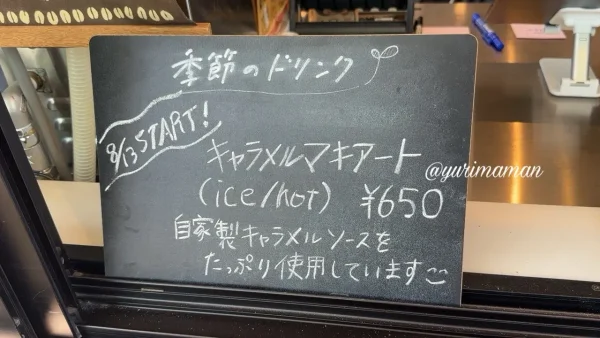 季節のドリンク
8/13 START!
キャラメルマキアート
(ice/hot) ¥650
自家製キャラメルソースを
たっぷり使用しています
@yurimaman